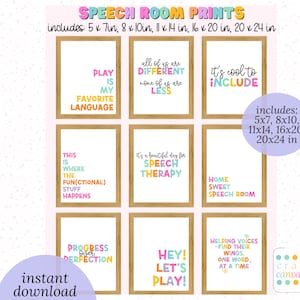 SPEECH ROOM PRINTS
includes: 5 x 7in, 8 x 10in, 11 x 14 in, 16 x 20 in, 20 x 24 in
PLAY
IS
MY
FAVORITE
LANGUAGE
all of us are
DIFFERENT
none of us are
LESS
it's cool to
INCLUDE
includes:
5x7, 8x10,
11x14, 16x20
20x24 in
THIS
IS
WHERE
THE
FUN(CTIONAL)
STUFF
HAPPENS
it's a beautiful day for
SPEECH
THERAPY
HOME
SWEET
SPEECH ROOM
PROGRESS
over
PERFECTION
HEY!
LET'S
PLAY!
HELPING VOICES
FIND THEIR
WINGS,
ONE WORD,
AT A TIME
instant
download